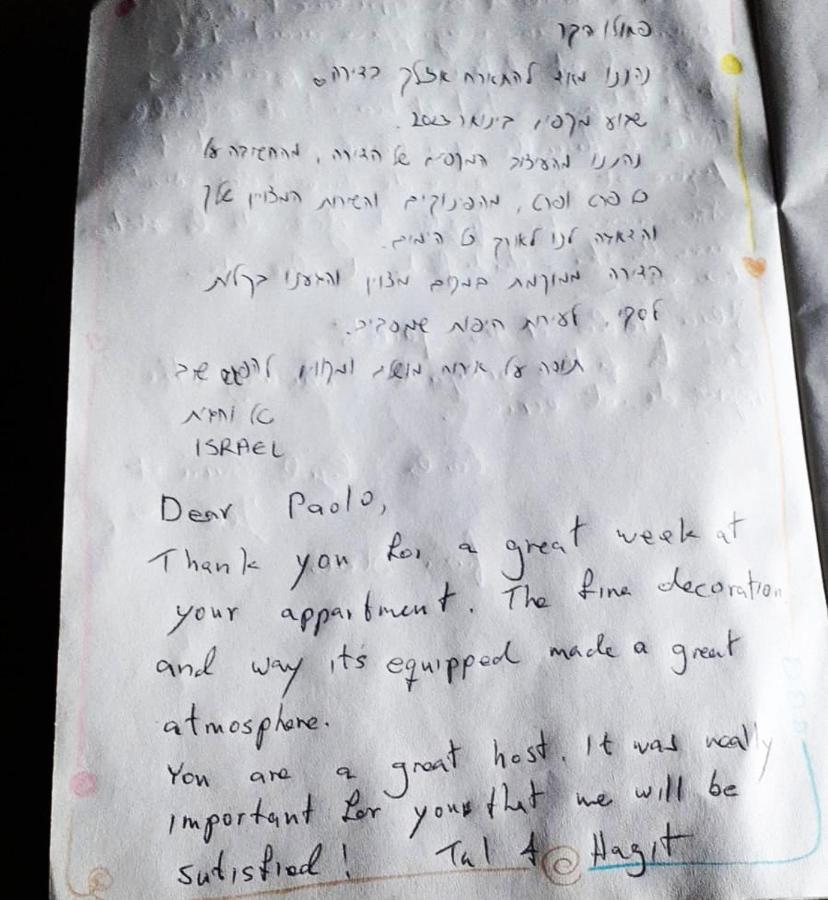 פאולו היקר
נהננו מאוד להתארח אצלך בדירה
שבוע מקסים, בינואר 2023.
נהננו מהעיצוב המקסים של הדירה, מהחשיבה על
כל פרט ופרט, מהפינוקים והשירות המצוין שלך
והדאגה לנו לאורך כל הימים.
הדירה ממוקמת במקום מצוין והגענו בקלות
לסקי, לעיירות היפות שמסביב.
תודה על אירוח מושלם ומקווים להפגש שוב
טל וחגית
ISRAEL
Dear Paolo,
Thank you for a great week at
your appartment. The fine decoration
and way its equipped made a great
atmosphere.
You are a great host. It was really
important for you that we will be
sutisfied! Tal & Hagit